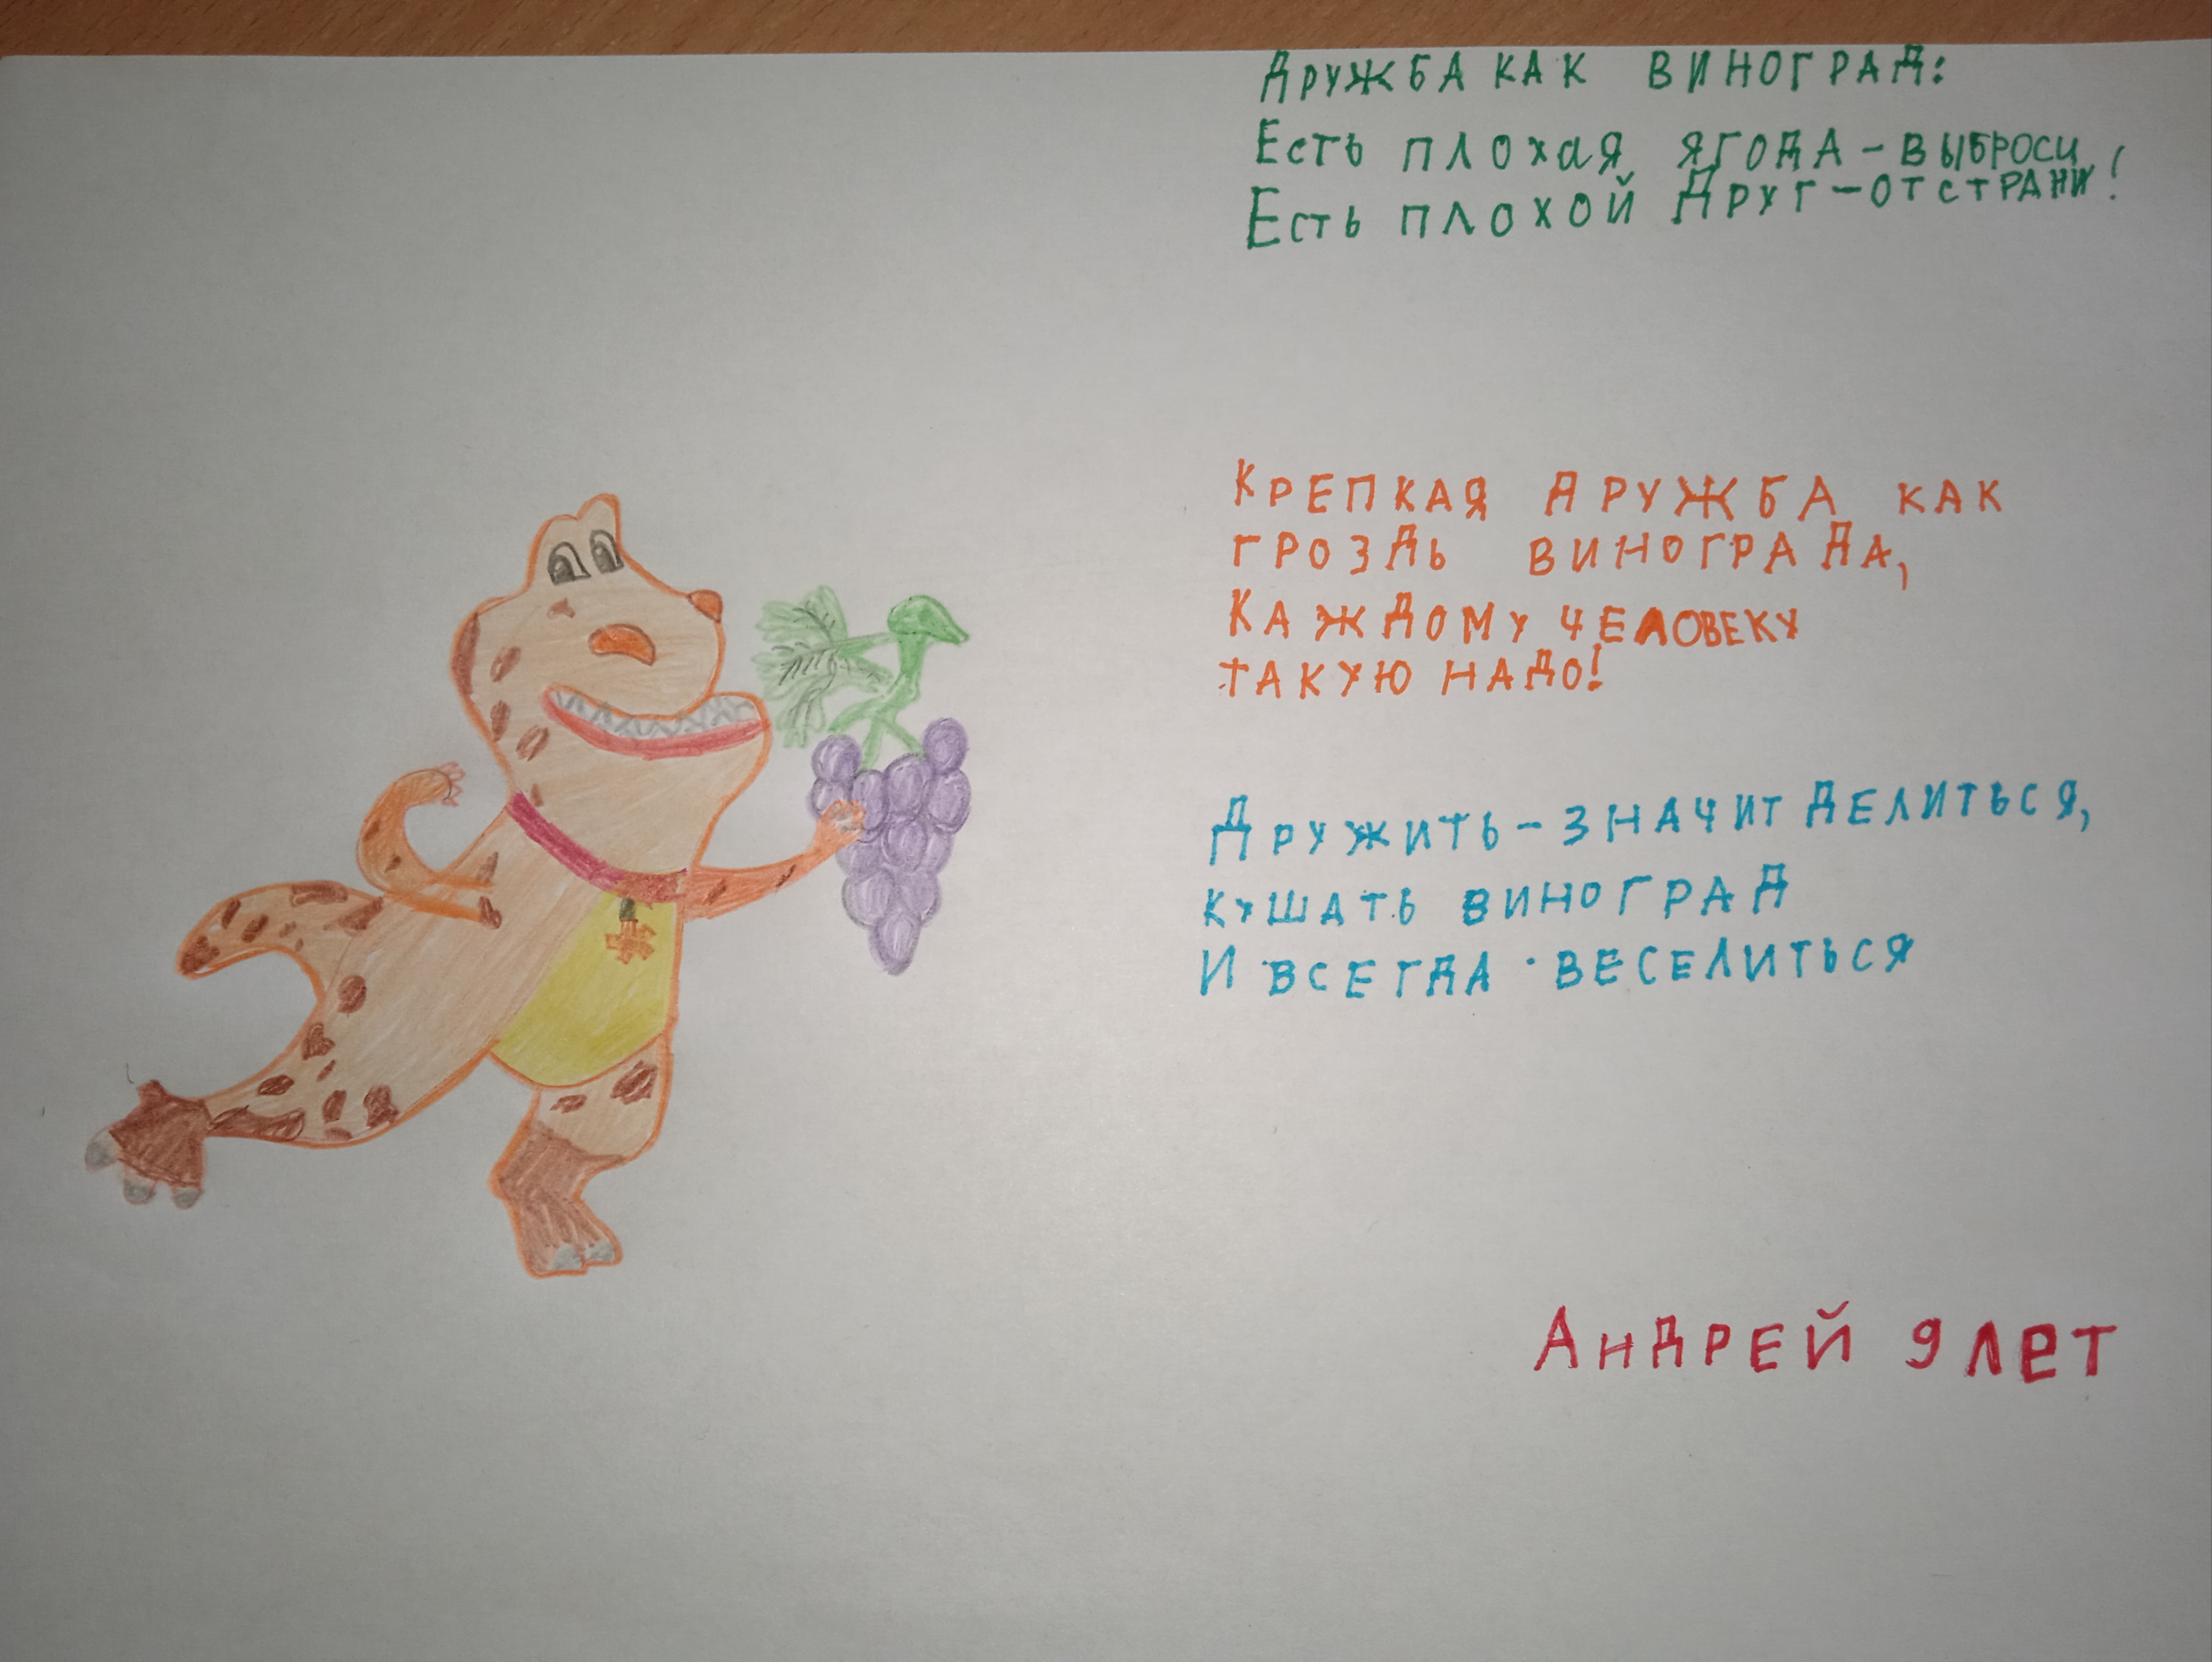 Дружба как виноград:
Есть плохая ягода - выброси,
Есть плохой Друг - отстрани!
Крепкая дружба как
гроздь винограда,
Каждому человеку
такую надо!
Дружить - значит делиться,
кушать виноград
И всегда веселиться
Андрей 9 лет